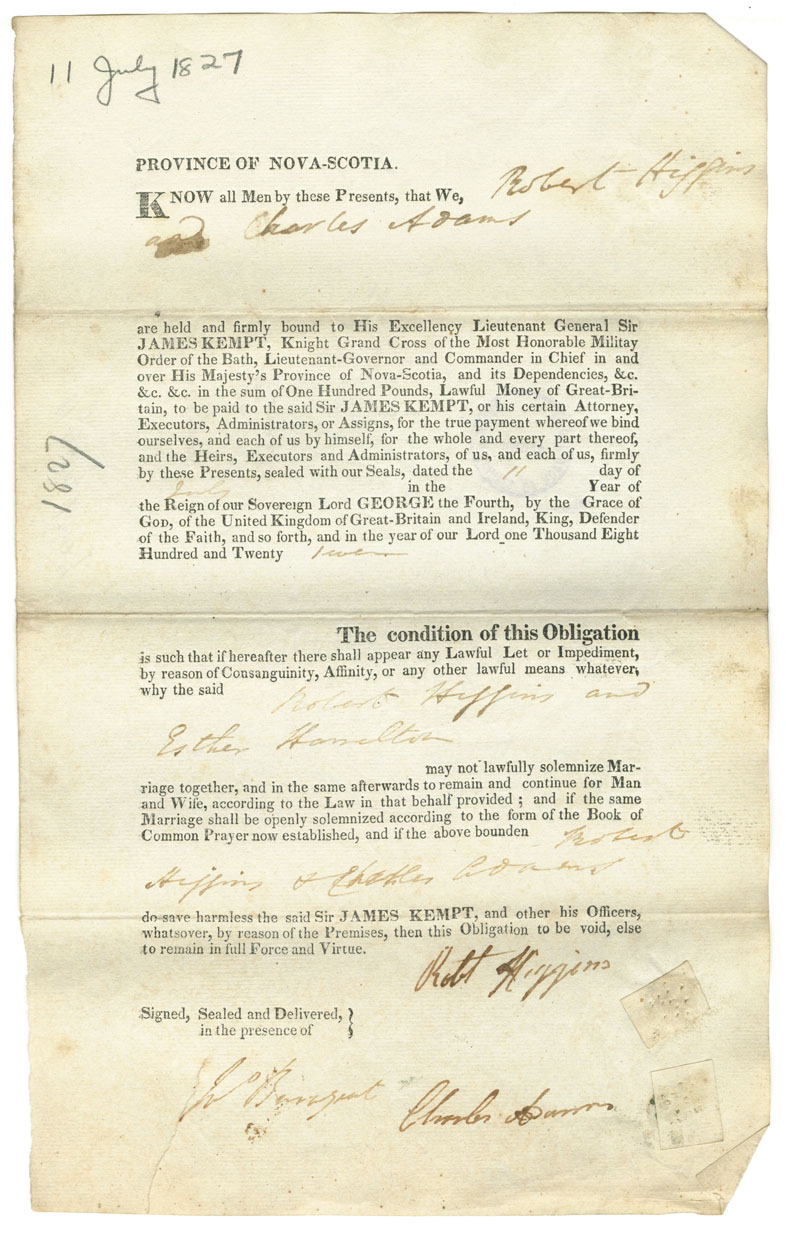 11 July 1827
PROVINCE OF NOVA-SCOTIA.
KNOW all Men by these Presents, that We, Robert Higgins
and Charles Adams
are held and firmly bound to His Excellency Lieutenant General Sir
JAMES KEMPT, Knight Grand Cross of the Most Honorable Militay
Order of the Bath, Lieutenant-Governor and Commander in Chief in and
over His Majesty's Province of Nova-Scotia, and its Dependencies, &c.
&c. &c. in the sum of One Hundred Pounds, Lawful Money of Great-Bri-
tain, to be paid to the said Sir JAMES KEMPT, or his certain Attorney,
Executors, Administrators, or Assigns, for the true payment whereof we bind
ourselves, and each of us by himself, for the whole and every part thereof,
and the Heirs, Executors and Administrators, of us, and each of us, firmly
by these Presents, sealed with our Seals, dated the 11 day of
July in the Year of
the Reign of our Sovereign Lord GEORGE the Fourth, by the Grace of
GOD, of the United Kingdom of Great-Britain and Ireland, King, Defender
of the Faith, and so forth, and in the year of our Lord one Thousand Eight
Hundred and Twenty seven
1827
The condition of this Obligation
is such that if hereafter there shall appear any Lawful Let or Impediment,
by reason of Consanguinity, Affinity, or any other lawful means whatever,
why the said Robert Higgins and
Esther Hamilton
may not lawfully solemnize Mar-
riage together, and in the same afterwards to remain and continue for Man
and Wife, according to the Law in that behalf provided ; and if the same
Marriage shall be openly solemnized according to the form of the Book of
Common Prayer now established, and if the above bounden Robert
Higgins & Charles Adams
do save harmless the said Sir JAMES KEMPT, and other his Officers,
whatsover, by reason of the Premises, then this Obligation to be void, else
to remain in full Force and Virtue.
Robt Higgins
Signed, Sealed and Delivered,
in the presence of
Charles Adams